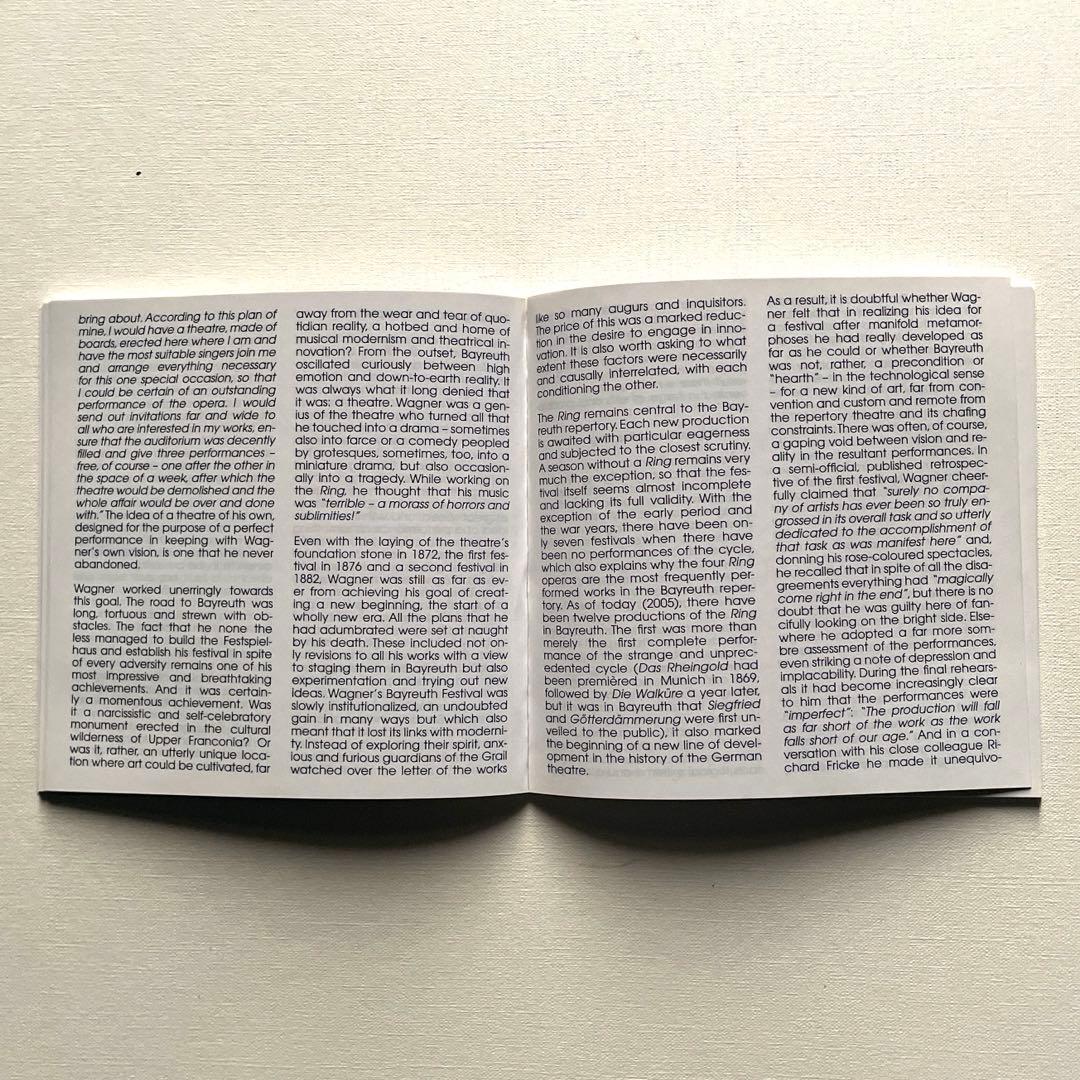 bring about. According to this plan of
mine, I would have a theatre, made of
boards, erected here where I am and
have the most suitable singers join me
and arrange everything necessary
for this one special occasion, so that
I could be certain of an outstanding
performance of the opera. I would
send out invitations far and wide to
all who are interested in my works, en-
sure that the auditorium was decently
filled and give three performances –
free, of course – one after the other in
the space of a week, after which the
theatre would be demolished and the
whole affair would be over and done
with." The idea of a theatre of his own,
designed for the purpose of a perfect
performance in keeping with Wag-
ner's own vision, is one that he never
abandoned.
Wagner worked unerringly towards
this goal. The road to Bayreuth was
long, tortuous and strewn with ob-
stacles. The fact that he none the
less managed to build the Festspiel-
haus and establish his festival in spite
of every adversity remains one of his
most impressive and breathtaking
achievements. And it was certain-
ly a momentous achievement. Was
it a narcissistic and self-celebratory
monument erected in the cultural
wilderness of Upper Franconia? Or
was it, rather, an utterly unique loca-
tion where art could be cultivated, far
away from the wear and tear of quo-
tidian reality, a hotbed and home of
musical modernism and theatrical in-
novation? From the outset, Bayreuth
oscillated curiously between high
emotion and down-to-earth reality. It
was always what it long denied that
it was: a theatre. Wagner was a gen-
ius of the theatre who turned all that
he touched into a drama – sometimes
also into farce or a comedy peopled
by grotesques, sometimes, too, into a
miniature drama, but also occasion-
ally into a tragedy. While working on
the Ring, he thought that his music
was "terrible – a morass of horrors and
sublimities!"
Even with the laying of the theatre's
foundation stone in 1872, the first fes-
tival in 1876 and a second festival in
1882, Wagner was still as far as ev-
er from achieving his goal of creat-
ing a new beginning, the start of a
wholly new era. All the plans that he
had adumbrated were set at naught
by his death. These included not on-
ly revisions to all his works with a view
to staging them in Bayreuth but also
experimentation and trying out new
ideas. Wagner's Bayreuth Festival was
slowly institutionalized, an undoubted
gain in many ways but which also
meant that it lost its links with moderni-
ty. Instead of exploring their spirit, anx-
ious and furious guardians of the Grail
watched over the letter of the works
like so many augurs and inquisitors.
The price of this was a marked reduc-
tion in the desire to engage in inno-
vation. It is also worth asking to what
extent these factors were necessarily
and causally interrelated, with each
conditioning the other.
The Ring remains central to the Bay-
reuth repertory. Each new production
is awaited with particular eagerness
and subjected to the closest scrutiny.
A season without a Ring remains very
much the exception, so that the fes-
tival itself seems almost incomplete
and lacking its full validity. With the
exception of the early period and
the war years, there have been on-
ly seven festivals when there have
been no performances of the cycle,
which also explains why the four Ring
operas are the most frequently per-
formed works in the Bayreuth reper-
tory. As of today (2005), there have
been twelve productions of the Ring
in Bayreuth. The first was more than
merely the first complete perfor-
mance of the strange and unprec-
edented cycle (Das Rheingold had
been premièred in Munich in 1869,
followed by Die Walküre a year later,
but it was in Bayreuth that Siegfried
and Götterdämmerung were first un-
veiled to the public), it also marked
the beginning of a new line of devel-
opment in the history of the German
theatre.
As a result, it is doubtful whether Wag-
ner felt that in realizing his idea for
a festival after manifold metamor-
phoses he had really developed as
far as he could or whether Bayreuth
was not, rather, a precondition or
"hearth" – in the technological sense
– for a new kind of art, far from con-
vention and custom and remote from
the repertory theatre and its chafing
constraints. There was often, of course,
a gaping void between vision and re-
ality in the resultant performances. In
a semi-official, published retrospec-
tive of the first festival, Wagner cheer-
fully claimed that "surely no compa-
ny of artists has ever been so truly en-
grossed in its overall task and so utterly
dedicated to the accomplishment of
that task as was manifest here" and,
donning his rose-coloured spectacles,
he recalled that in spite of all the disa-
greements everything had "magically
come right in the end", but there is no
doubt that he was guilty here of fan-
cifully looking on the bright side. Else-
where he adopted a far more som-
bre assessment of the performances,
even striking a note of depression and
implacability. During the final rehears-
als it had become increasingly clear
to him that the performances were
"imperfect": "The production will fall
as far short of the work as the work
falls short of our age." And in a con-
versation with his close colleague Ri-
chard Fricke he made it unequivo-